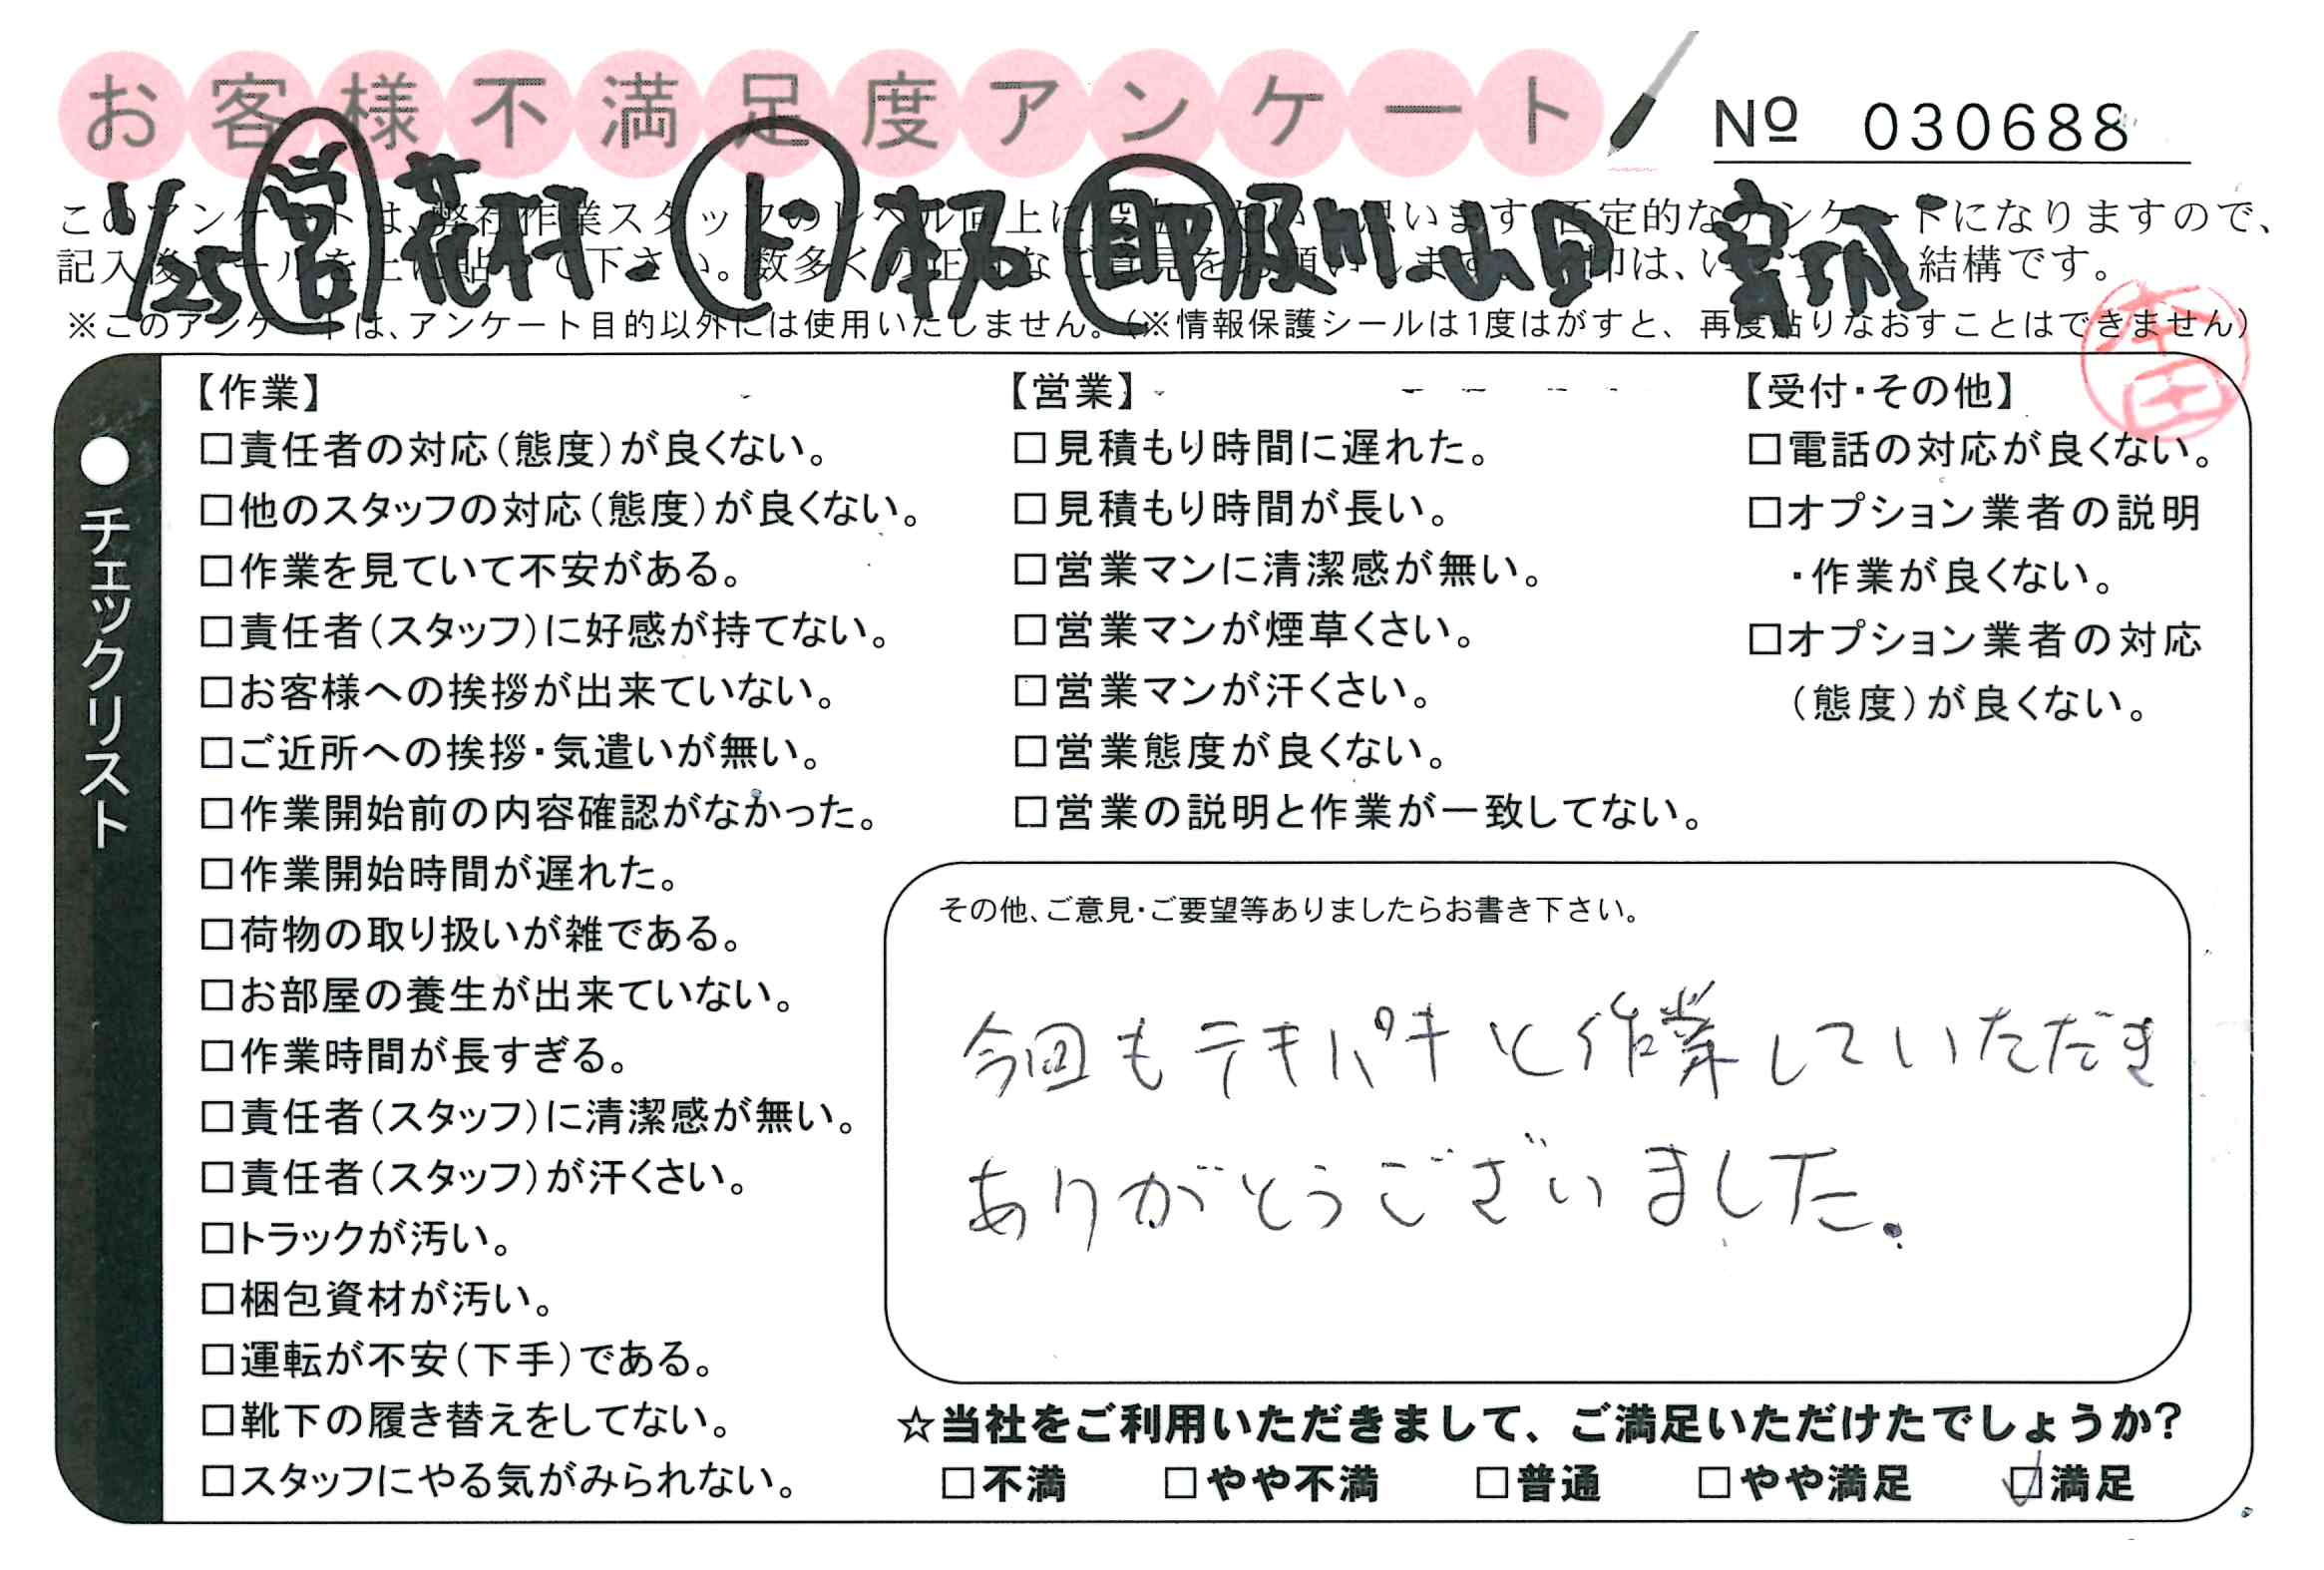 お客様不満足度アンケート
No 030688
1/25 営 花村 ト 本名 助 及川 山田
※このアンケートは、アンケート目的以外には使用いたしません。（※情報保護シールは1度はがすと、再度貼りなおすことはできません）
本田
●チェックリスト
【作業】
□責任者の対応（態度）が良くない。
□他のスタッフの対応（態度）が良くない。
□作業を見ていて不安がある。
□責任者（スタッフ）に好感が持てない。
□お客様への挨拶が出来ていない。
□ご近所への挨拶・気遣いが無い。
□作業開始前の内容確認がなかった。
□作業開始時間が遅れた。
□荷物の取り扱いが雑である。
□お部屋の養生が出来ていない。
□作業時間が長すぎる。
□責任者（スタッフ）に清潔感が無い。
□責任者（スタッフ）が汗くさい。
□トラックが汚い。
□梱包資材が汚い。
□運転が不安（下手）である。
□靴下の履き替えをしてない。
□スタッフにやる気がみられない。
【営業】
□見積もり時間に遅れた。
□見積もり時間が長い。
□営業マンに清潔感が無い。
□営業マンが煙草くさい。
□営業マンが汗くさい。
□営業態度が良くない。
□営業の説明と作業が一致してない。
【受付・その他】
□電話の対応が良くない。
□オプション業者の説明
・作業が良くない。
□オプション業者の対応
（態度）が良くない。
その他、ご意見・ご要望等ありましたらお書き下さい。
今回もテキパキと作業していただき
ありがとうございました。
☆当社をご利用いただきまして、ご満足いただけたでしょうか？
□不満 □やや不満 □普通 □やや満足 ☑満足